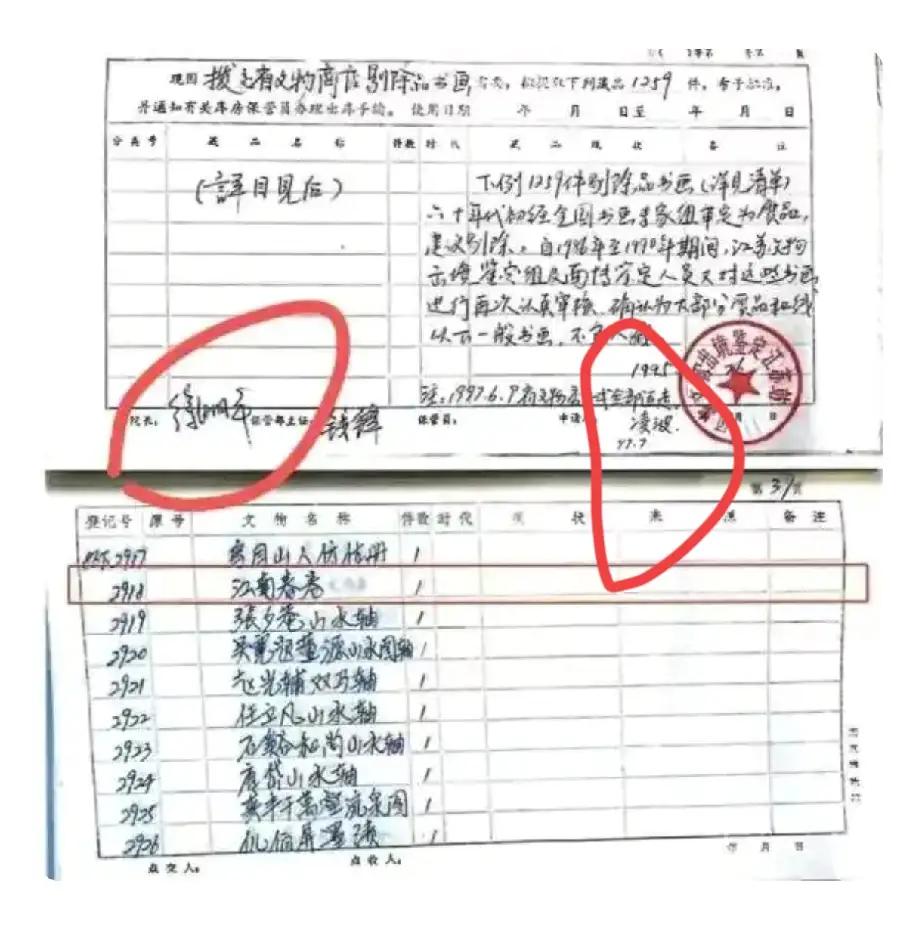 现因 拨充省文物商店剔除品书画 需要，拟提 下列藏品1259件，希予批准，
并通知有关库房保管员办理出库手续。 使用日期 年 月 日至 年 月 日
分类号 藏品名称 件数 时代 藏品现状 备注
(詳目見后)
下例1259件剔除品书画(详见清单)
六十年代初经全国书画专家组审定为质品,
建议剔除。自1986年至1990年期间,江苏文物
出境鉴定组 鉴定人员又对这些书画
进行再次认真审核, 确认为大部分 品和线
以下一般书画, 不
1995
出境鉴定江苏站
注:1997.6.9
院长: 徐湖平 保管部主任: 钱锋 保管员: 申请 凌波.
97.7
第37页
登记号 原号 文物名称 件数 时代 现状 来源 备注
2917 山人 册 1
2918 江南春卷 1
2919 張夕菴山水轴 1
2920 吴 祖董源山水图轴 1
2921 赵光辅双马轴 1
2922 任立凡山水轴 1
2923 石谿和尚山水轴 1
2924 唐岱山水轴 1
2925 万壑流泉图 1
2926 1
点交人: 点收人: 年 月 日